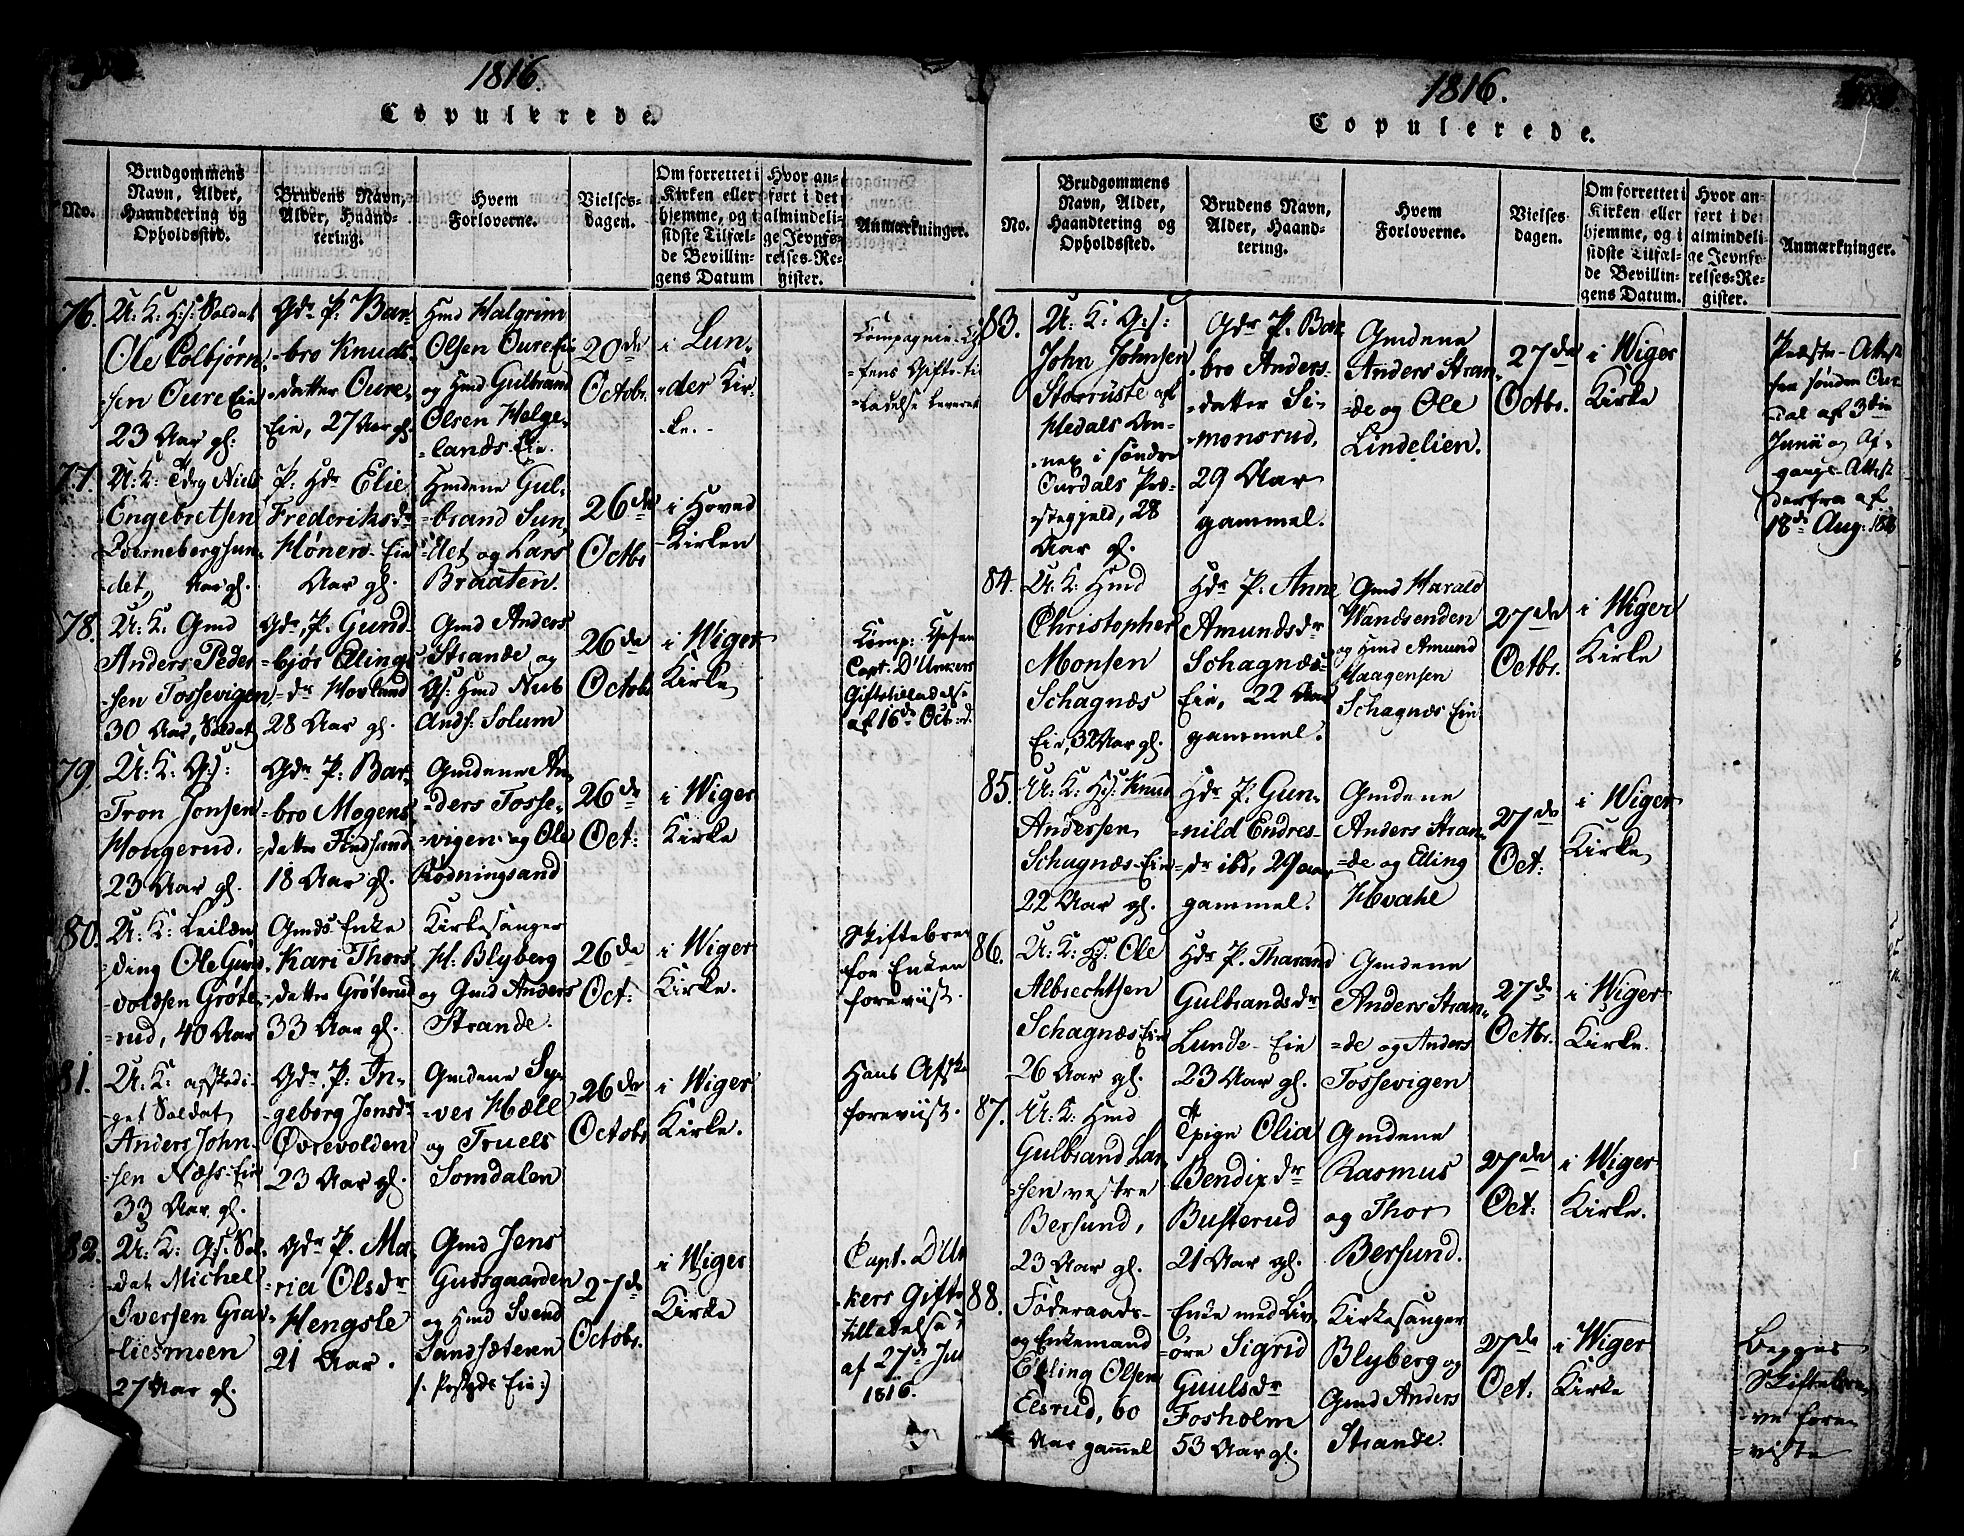 1816.
Copulerede.
No.
Brudgommens
Navn, Alder,
Haandtering og
Opholdssted.
Brudens Navn,
Alder, Haand-
tering.
Hvem
Forloverne.
Vielses-
dagen.
Om forrettet i
Kirken eller
hjemme, og i
sidste Tilfæl-
de Bevillin-
gens Datum
Hvor an-
ført i det
almindeli-
ge Jevnfø-
relses-Re-
gister.
Anmærkninger.
76.
U: K: H:s: Soldat
Ole Colbjørn-
-sen Oure Eie
23 Aar gl:
Gdr P: Bar-
-bro Knuds-
-datter Oure-
Eie, 27 Aar gl.
Hmd Halgrim
Olsen Oure Eie
og Hmd Gulbrand
Olsen Helge-
-lands-Eie.
20de
Octobr.
i Lun-
-der Kir-
-ke.
Compagnie
-fens Gifte-ti
-ladelse leveret
77.
U: K: Niels
Engebretsen
-det, Aar gl.
P: Hdr Elie
Frederiksdr
Hønen-Eie
Aar gl.
Hmdene Gul-
-brand Sun-
-det og Lars
Braaten.
26de
Octbr
i Hoved
-Kirken
78.
U: K: Gmd
Anders Peder-
-sen Tossevigen
30 Aar, Soldat
Gdr, P: Gund-
-bjør Ellings-
-dr Hovland
28 Aar gl.
Gmd Anders
Strande og
Gs: Hmd Nub
Andf: Solum
26de
Octobr
i Wiger
Kirke
Comp:
Capt: D'Unkers
Giftetilladelse
af 16de Oct:
79.
U: K: G:s:
Tron Jonsen
Hougerud.
23 Aar gl.
Gdr P: Bar-
-bro Mogens-
-datter Findsand
18 Aar gl.
Gmdene An-
-ders Tosse-
-vigen og Ole
Rødningsand
26de
Oct:
i Wiger
Kirke
80.
U: K: Leilæn-
-ding Ole Gund-
-voldsen Grøte-
-rud, 40 Aar
Gmds-Enke
Kari Thors-
-datter Grøterud
33 Aar gl.
Kirkesanger
H: Blyberg
og Gmd Anders
Strande.
26de
Oct:
i Wiger
Kirke.
Skiftebrev
for Enken
foreviist.
81.
U: K: afskedi-
-get Soldat
Anders John-
-sen Næss-Eie
33 Aar gl.
Gdr P: In-
-geborg Jensd-
Øvrevolden
23 Aar gl.
Gmdene Sy-
-ver Hæll
og Truels
Somdalen
26de
Octobr
i Wiger
Kirke.
Hans Afsk
foreviist.
82.
U: K: Gs: Sol-
-dat Michel
Iversen Grav-
-liesmoen
27 Aar gl.
Gdr P. Ma-
-ria Olsdr
Hengsle
21 Aar.
Gmd Jens
Gudsgaarden
og Hmd Svend
Sandsæteren
27de
Octobr.
i Wiger
Kirke
Capt. D'Un
-kers Gifte
tilladelse
af 27de Ju
1816.
1816.
Copulerede.
No.
Brudgommens
Navn, Alder,
Haandtering og
Opholdssted.
Brudens Navn,
Alder, Haand-
tering.
Hvem
Forloverne.
Vielses-
dagen.
Om forrettet i
Kirken eller
hjemme, og i
sidste Tilfæl-
de Bevillin-
gens Datum.
Hvor an-
ført i det
almindeli-
ge Jevnfø-
relses-Re-
gister.
Anmærkninger.
83.
U: K: G:s:
John Johnsen
Storruste af
Hedals An-
-nex i søndre
Ourdals Præ-
-stegjeld, 28
Aar gl.
Gdr P. Bar-
-bro Anders-
-datter Si-
-monsrud,
29 Aar
gammel.
Gmdene
Anders Stran-
=de og Ole
Lindelien.
27de
Octbr.
i Wiger
Kirke
Præste-Attest
fra søndre Our
-dal af 3die
Junii og Af-
gangs-Attest
derfra af
18de Aug: 1816
84.
U: K: Hmd
Christopher
Monsen
Schagnæs
Eie, 32 Aar gl.
Hdr P: Anne
Amundsdr
Schagnæs-
Eie, 22 Aar
gammel.
Gmd Harald
Wandsenden
og Hmd Amund
Haagensen
Schagnæs Eie
27de
Octbr.
i Wiger
Kirke
85.
U: K: H:s: Knud
Andersen
Schagnæs-Eie
22 Aar gl.
Hdr P. Gun-
-nild Endres-
-dr ibd, 29 aar
gammel.
Gmdene
Anders Stran-
=de og Elling
Hovahl
27de
Oct:
i Wiger
Kirke
86.
U: K: Hs: Ole
Albrechtsen
Schagnæs Eie
26 Aar gl.
Hdr P. Tharand
Gulbrandsdr
Lunde-Eie
23 Aar gl.
Gmdene
Anders Stran-
=de og Anders
Tossevigen
27de
Octbr.
i Wiger
Kirke.
87.
U: K: Hmd
Gulbrand Lar-
-sen vestre
Bersund,
23 Aar gl.
Tpige Olia
Bendixdr
Busterud
21 Aar gl.
Gmdene
Rasmus
og Thor
Bersund.
27de
Oct:
i Wiger
Kirke.
88.
Føderaads-
og Enkemand
Elling Olsen
Elsrud, 60
Aar gammel
Enke med Liv-
-øre Sigrid
Guulsdr
Fosholm
53 Aar gl.
Kirkesanger
Blyberg og
Gmd Anders
Strande.
27de
Oct:
i Wiger
Kirke
Begges
Skiftebre-
-ve fore-
=viste